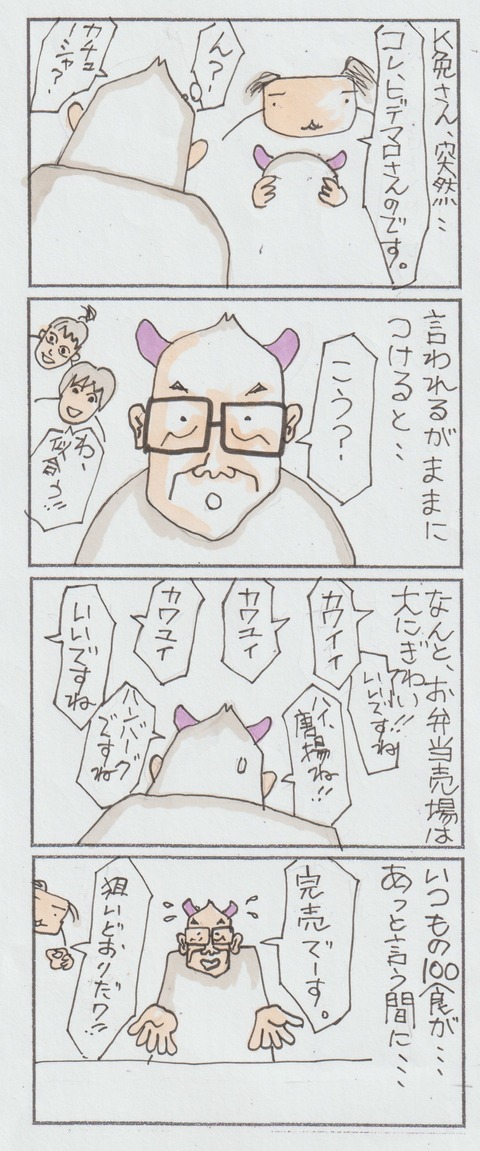 K兎さん、突然…
コレ、ヒデマロさんのです。
ん?
カチュ
ーシャ?
言われるがままに
つけると…
こう?
わ、
似合う!!
なんと、お弁当売場は
大にぎわい!!
カワイイ
いいですね
カワユイ
カワユイ
いいですね
ハイ、
唐揚ね!!
ハンバーグ
ですね
いつもの100食が…
あっと言う間に…
完売でーす。
狙いどおりだワ!!